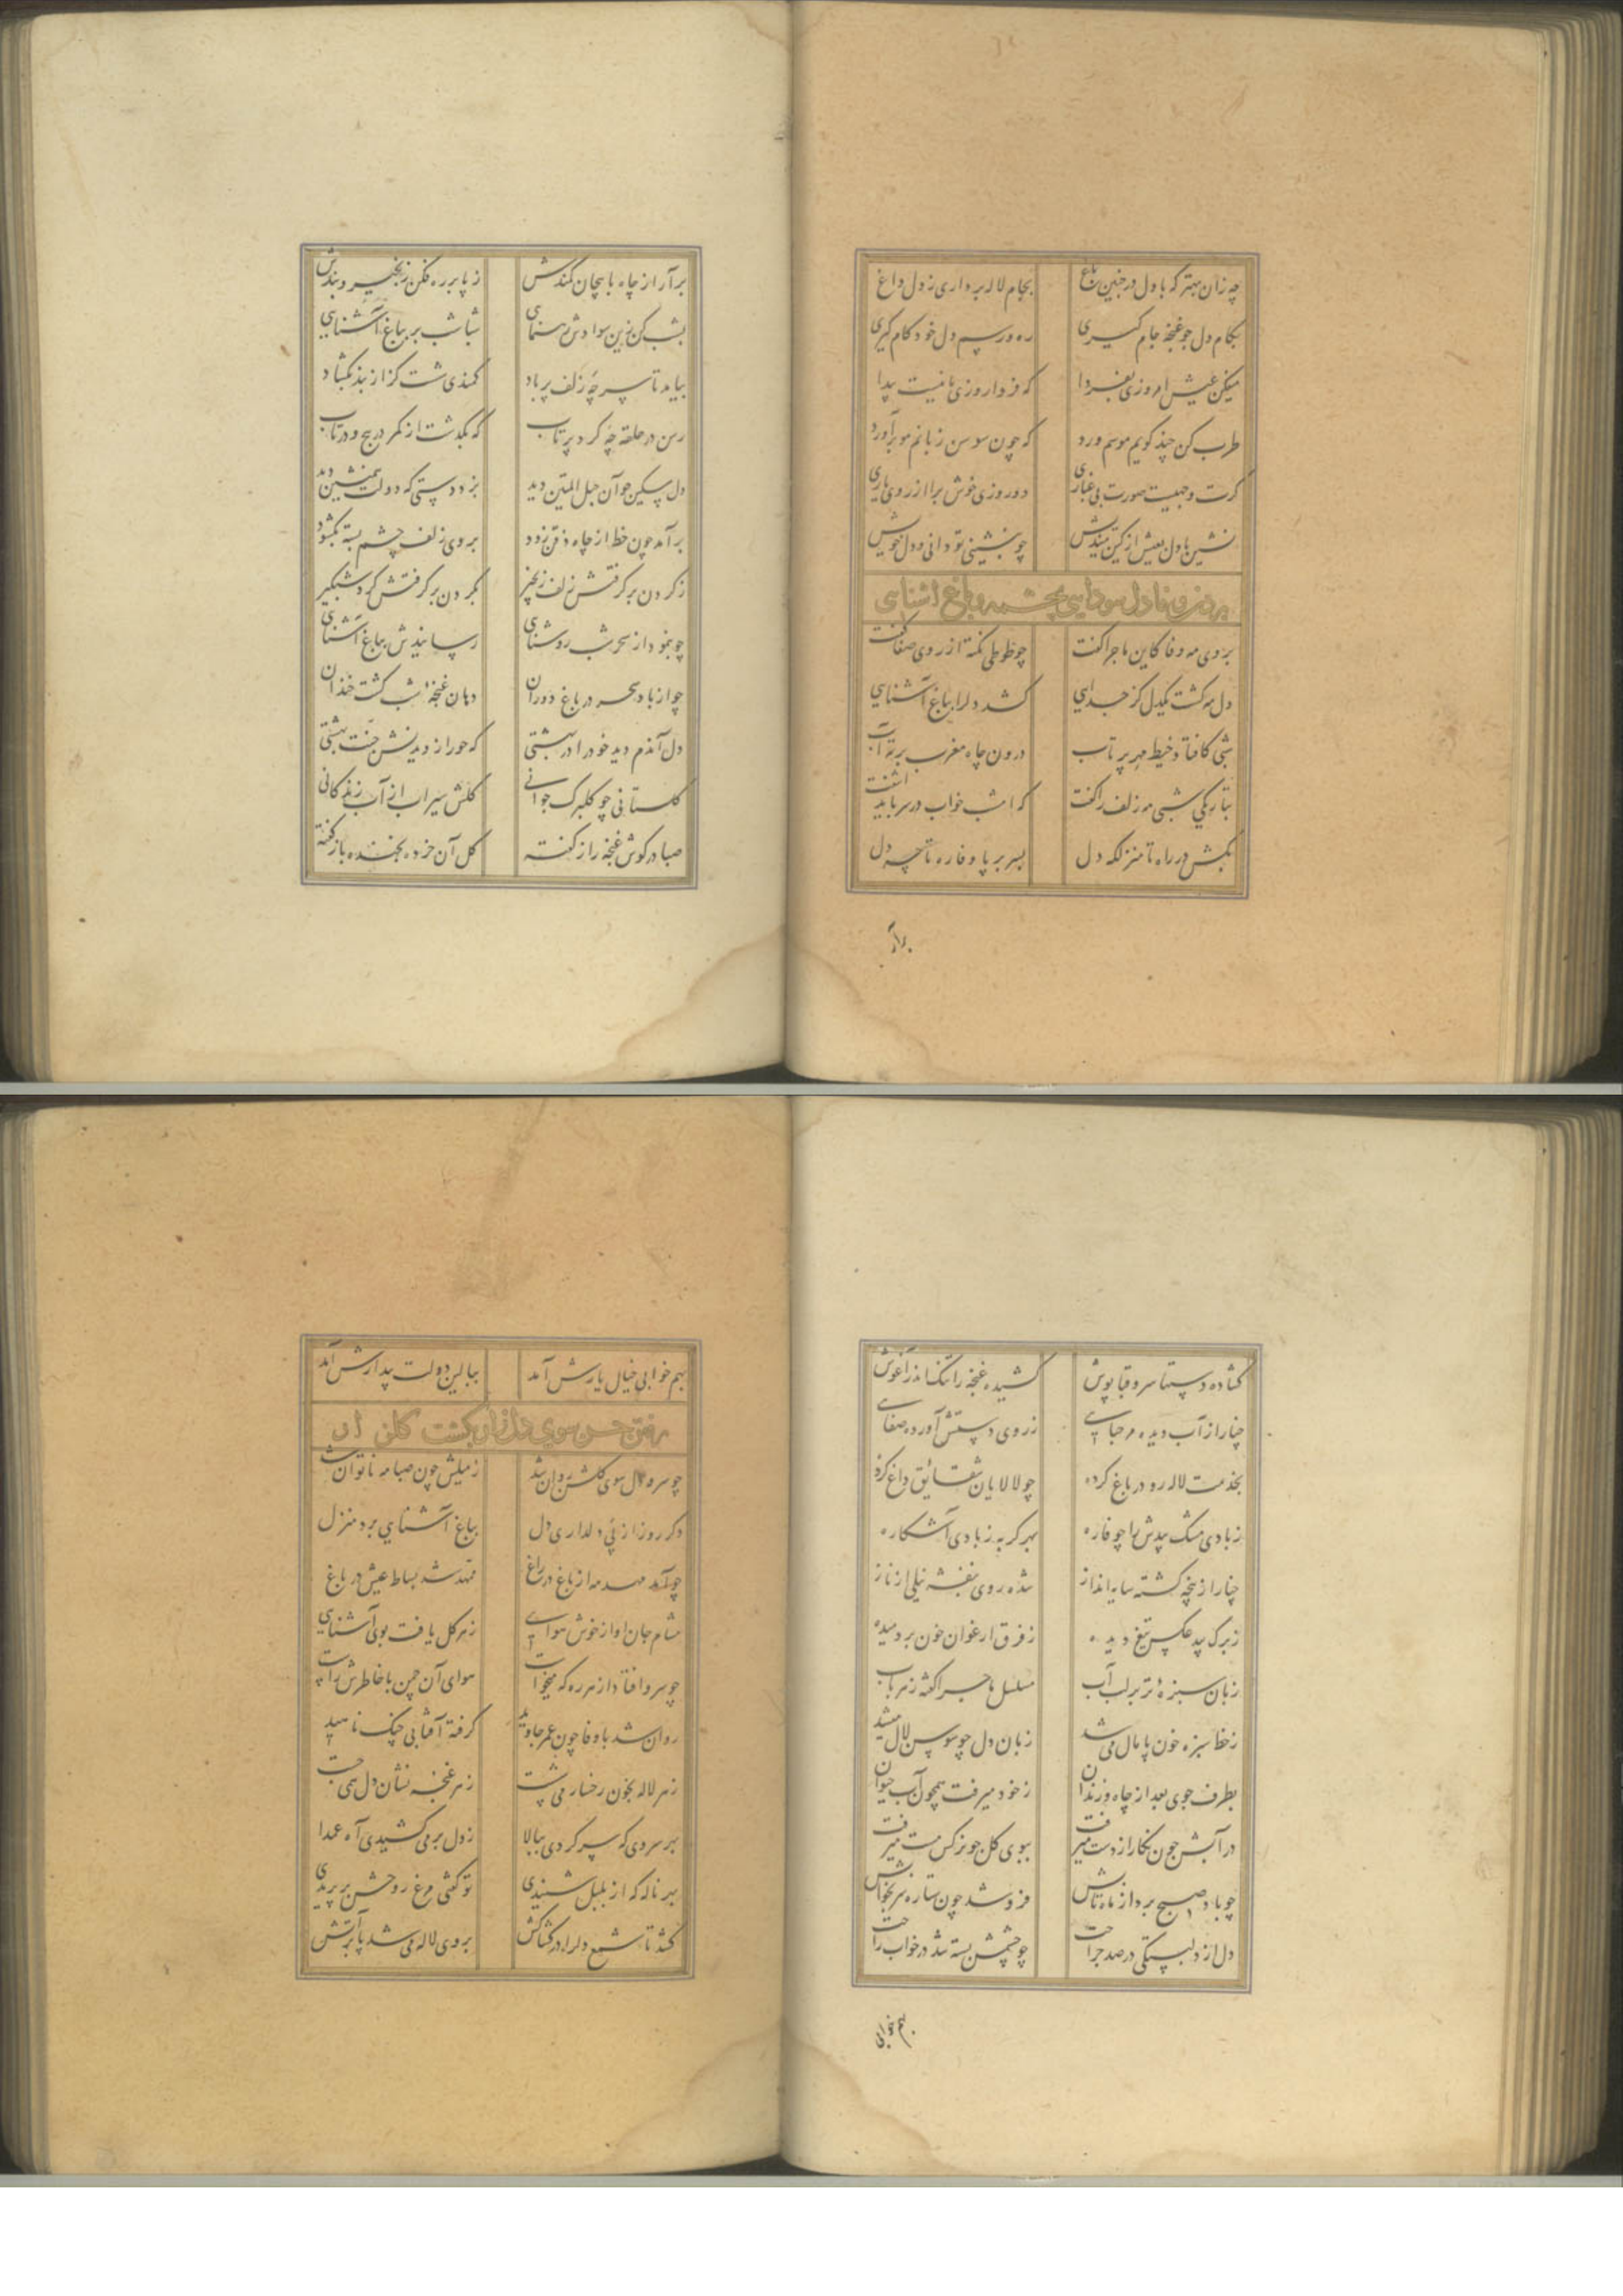 چه زان بهتر که با دل در چنین باغ بجام لاله برداری ز دل داغ
بکام دل چو غنچه جام گیری ره و رسم دل خود کام گیری
میکن عیش امروزی بفردا که فردا روزی ما نیست پیدا
طرب کن چند گویم موسم ورد که چون سوسن زبانم مو برآورد
گرت وجهیست صورت بی غباری دو روزی خوش برا از روی یاری
نشین با دل بعیش از کین میندیش چو بنشینی تو دانی و دل خویش
بردن وفا دل سودایی بچشمه و باغ آشنایی
بروی مه وفا کاین ماجرا گفت چو طوطی نکته از روی صفا گفت
دل مه گشت یکدل کز جدایی کشد دلرا بباغ آشنایی
شبی کافتاد خیط مهر پر تاب درون چاه مغرب بر ته آب
بتاریکی شبی مه زلف را گفت که امشب خواب در سر باید آشفت
بکش در راه تا منزلگه دل بسر بر پا وفا ره تا چه دل
برآر
برآر از چاه با پیچان کمندش ز پا بر ره فکن زنجیر و بندش
بشب کن زین سوادش رهنمایی شباشب بر بباغ آشنایی
بیامد تا سر چه زلف پر باد کمندی شست کز از بند بگشاد
رسن در حلقه چه کرد پرتاب که بگذشت از کمر در پیچ و در تاب
دل مسکین چو آن حبل المتین دید بزد دستی که دولت همنشین دید
برآمد چون خط از چاه ذقن زود بروی زلف چشم بسته بگشود
ز گردن برگرفتش زلف زنجیر بگردن برگرفتش کرد شبگیر
چو بنمود از سحر شب روشنایی رسانیدش بباغ آشنایی
چو از باد سحر در باغ دوران دهان غنچه شب گشت خندان
دل آندم دید خود را در بهشتی که حور از دیدنش جنت بهشتی
گلستانی چو گلبرگ جوانی گلش سیراب از آب زندگانی
صبا در گوش غنچه راز گفته گل آن خرده بخنده باز گفته
گشاده دستها سرو قباپوش کشیده غنچه را تنگ اندر آغوش
چنار از آب دیده مرحبایی ز روی دستش آورده صفایی
بخدمت لاله رو در باغ کرده چو لالایان شقایق داغ کرده
زبادی مشک بیدش را چو فاره بهر گربه زبادی آشکاره
چنار از پنجه گشته سایه انداز شده روی بنفشه نیلی از ناز
ز برگ بید عکس تیغ دیده ز فرق ارغوان خون بردمیده
زبان سبزه تر بر لب آب مسلسل ماجرا گفته ز هر باب
ز خط سبزه خون پامال می شد زبان دل چو سوسن لال میشد
بطرف جوی بعد از چاه و زندان ز خود میرفت همچون آب حیوان
در آبش چون نگار از دست میرفت ببوی گل چو نرگس مست میرفت
چو باد صبح برد از ماه تابش فرو شد چون ستاره سر بخوابش
دل از دلبستگی در صد جراحت چو چشمش بسته شد در خواب راحت
بهم خوابی
بهم خوابی خیال یارش آمد ببالین دولت بیدارش آمد
رفتن حسن سوی دل زان گشت گلزار آن
چو سرو دل سوی گلشن روان شد ز میلش چون صبا مه ناتوان شد
دگر روز از پی دلداری دل بباغ آشنایی برد منزل
چو آمد مهد مه از باغ در راغ تمهد شد بساط عیش در باغ
مشام جان او از خوش هوایی ز هر گل یافت بوی آشنایی
چو سرو افتاد از هر ره که میخواست هوای آن چمن با خاطرش راست
روان شد با وفا چون عمر جاوید گرفته آفتابی چنگ ناهید
ز هر لاله بخون رخسار می شست ز هر غنچه نشان دل همی جست
بهر سروی که سر کردی ببالا ز دل برمی کشیدی آه عمدا
بهر ناله که از بلبل شنیدی تو گفتی مرغ روحش برپریدی
کشد تا شمع دلرا در کشاکش بروی لاله می شد پا بر آتش